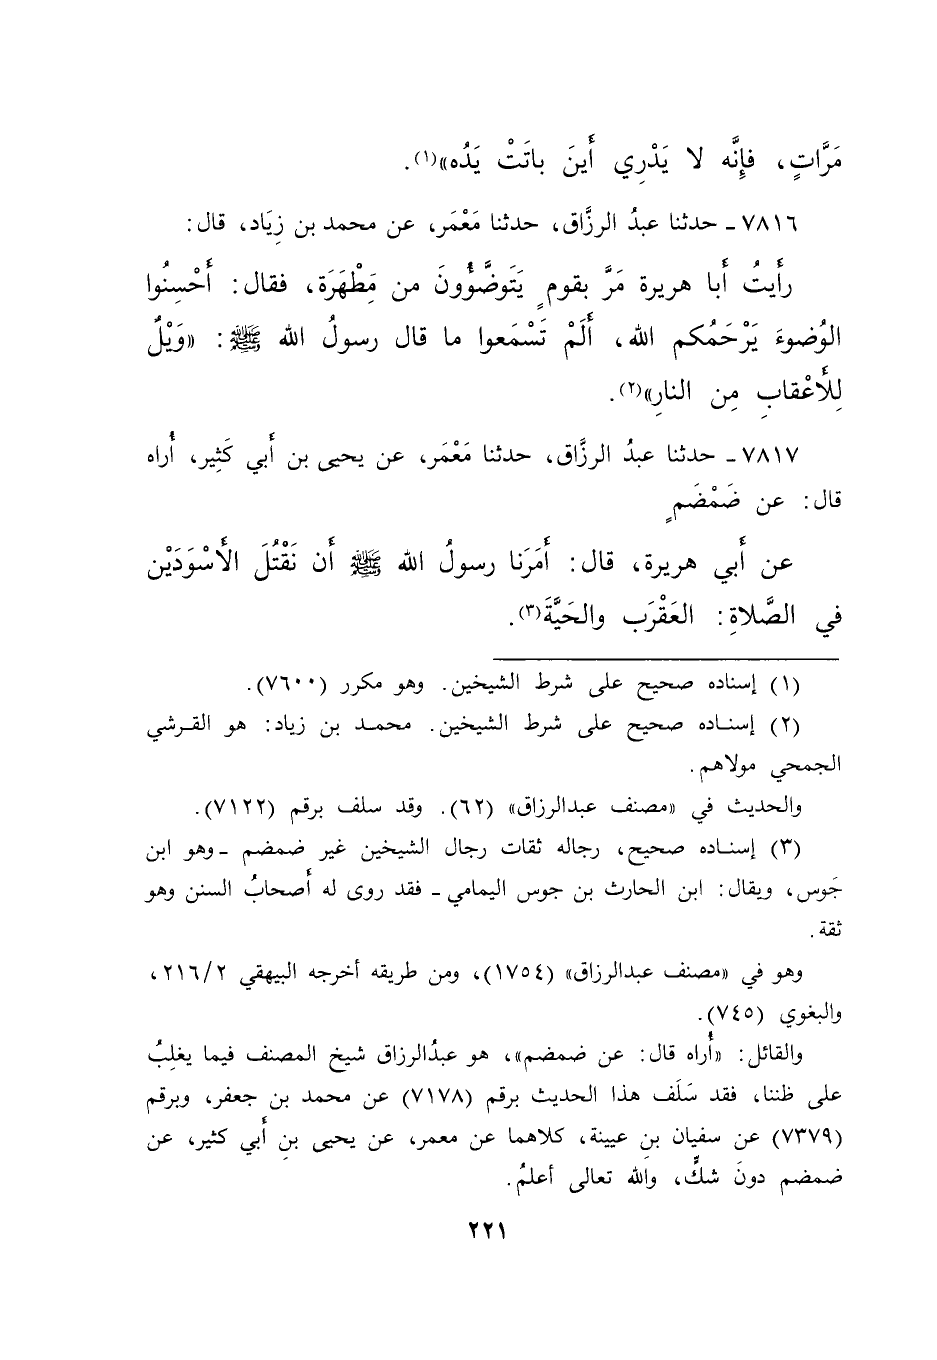 مَرَّاتٍ، فإِنَّه لا يَدْرِي أَينَ باتَتْ يَدُه»(١).
٧٨١٦ ـ حدثنا عبدُ الرزَّاق، حدثنا مَعْمَر، عن محمد بن زِيَاد، قال:
رأَيتُ أَبا هريرة مَرَّ بقومٍ يَتَوضَّؤُونَ من مَِطْهَرَة، فقال: أَحْسِنُوا
الوُضوءَ يَرْحَمُكم الله، أَلَمْ تَسْمَعوا ما قال رسولُ الله ﷺ: «وَيْلٌ
لِلأَعْقابِ مِن النارِ»(٢).
٧٨١٧ ـ حدثنا عبدُ الرزَّاق، حدثنا مَعْمَر، عن يحيى بن أَبي كَثِير، أُراه
قال: عن ضَمْضَمٍ
عن أَبي هريرة، قال: أَمَرَنا رسولُ الله ﷺ أَن نَقْتُلَ الأَسْوَدَيْن
في الصَّلاةِ: العَقْرَب والحَيَّةَ(٣).
(١) إسناده صحيح على شرط الشيخين. وهو مكرر (٧٦٠٠).
(٢) إسناده صحيح على شرط الشيخين. محمد بن زياد: هو القرشي
الجمحي مولاهم.
والحديث في «مصنف عبدالرزاق» (٦٢). وقد سلف برقم (٧١٢٢).
(٣) إسناده صحيح، رجاله ثقات رجال الشيخين غير ضمضم ـ وهو ابن
جَوس، ويقال: ابن الحارث بن جوس اليمامي ـ فقد روى له أَصحابُ السنن وهو
ثقة.
وهو في «مصنف عبدالرزاق» (١٧٥٤)، ومن طريقه أخرجه البيهقي ٢١٦/٢،
والبغوي (٧٤٥).
والقائل: «أُراه قال: عن ضمضم»، هو عبدُالرزاق شيخ المصنف فيما يغلِبُ
على ظننا، فقد سَلَف هذا الحديث برقم (٧١٧٨) عن محمد بن جعفر، وبرقم
(٧٣٧٩) عن سفيان بنِ عيينة، كلاهما عن معمر، عن يحيى بنِ أَبي كثير، عن
ضمضم دونَ شكٍّ، والله تعالى أعلمُ.
٢٢١